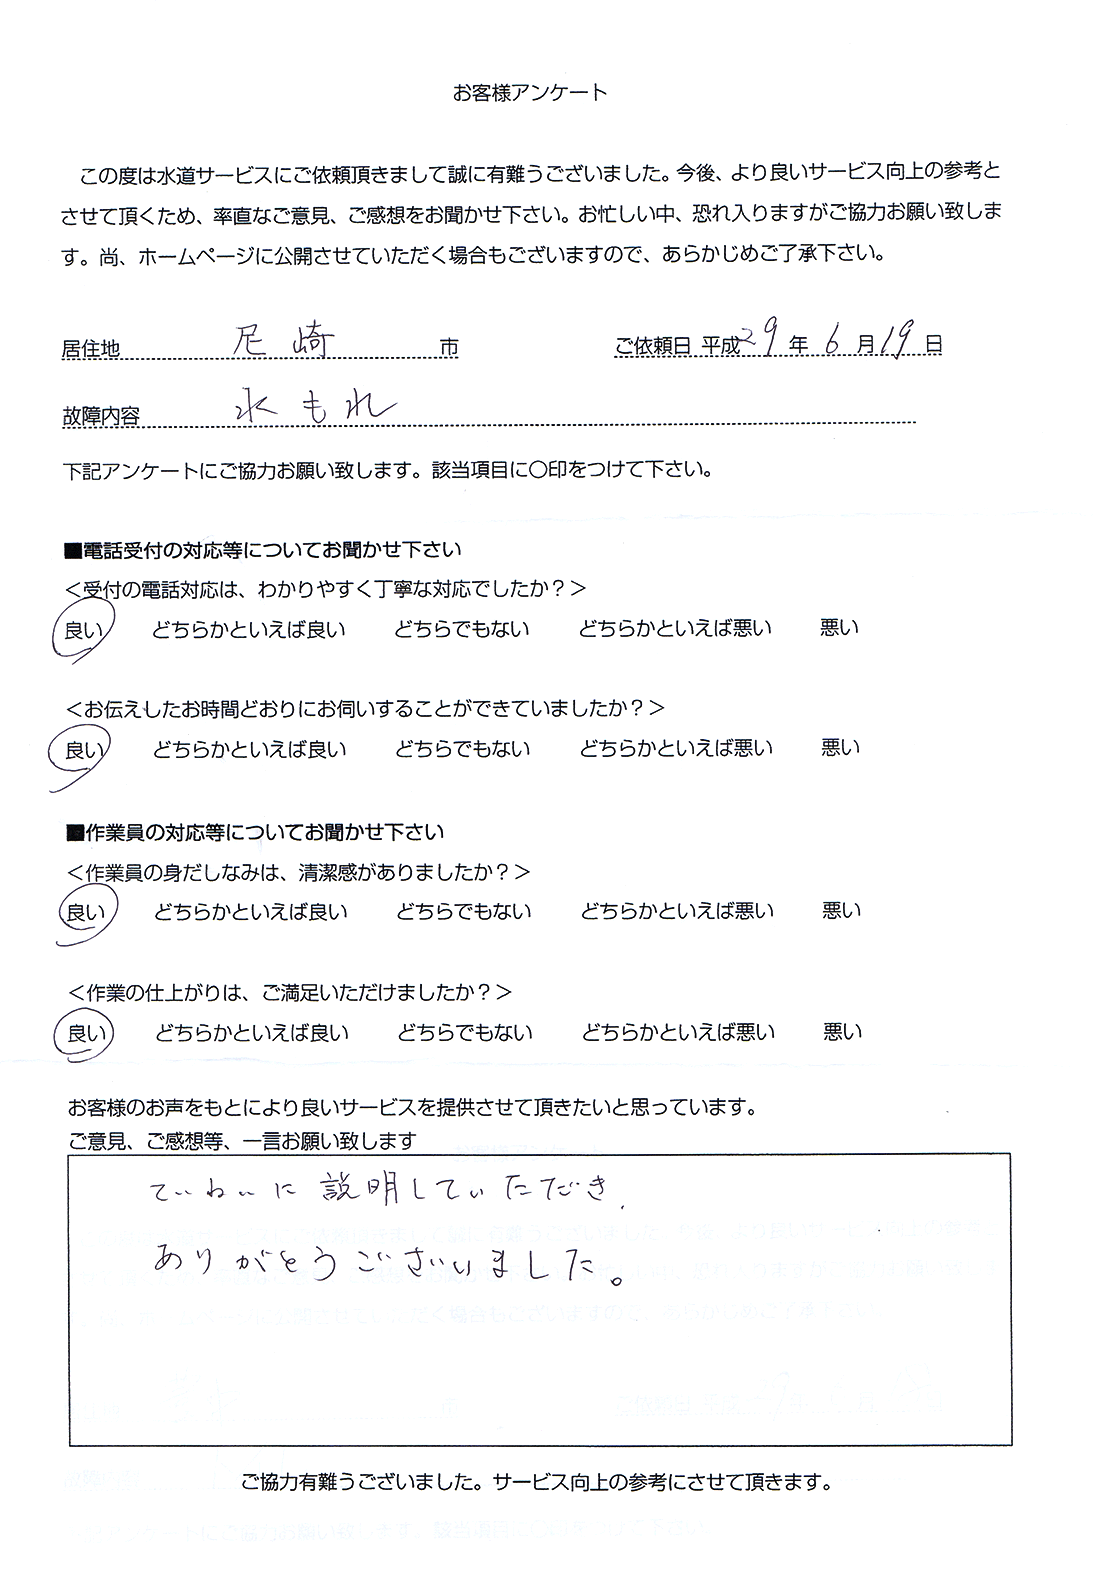 お客様アンケート
この度は水道サービスにご依頼頂きまして誠に有難うございました。今後、より良いサービス向上の参考と
させて頂くため、率直なご意見、ご感想をお聞かせ下さい。お忙しい中、恐れ入りますがご協力お願い致しま
す。尚、ホームページに公開させていただく場合もございますので、あらかじめご了承下さい。
居住地 尼崎 市 ご依頼日 平成29年6月19日
故障内容 水もれ
下記アンケートにご協力お願い致します。該当項目に〇印をつけて下さい。
■電話受付の対応等についてお聞かせ下さい
＜受付の電話対応は、わかりやすく丁寧な対応でしたか？＞
良い どちらかといえば良い どちらでもない どちらかといえば悪い 悪い
＜お伝えしたお時間どおりにお伺いすることができていましたか？＞
良い どちらかといえば良い どちらでもない どちらかといえば悪い 悪い
■作業員の対応等についてお聞かせ下さい
＜作業員の身だしなみは、清潔感がありましたか？＞
良い どちらかといえば良い どちらでもない どちらかといえば悪い 悪い
＜作業の仕上がりは、ご満足いただけましたか？＞
良い どちらかといえば良い どちらでもない どちらかといえば悪い 悪い
お客様のお声をもとにより良いサービスを提供させて頂きたいと思っています。
ご意見、ご感想等、一言お願い致します
ていねいに説明していただき、
ありがとうございました。
ご協力有難うございました。サービス向上の参考にさせて頂きます。